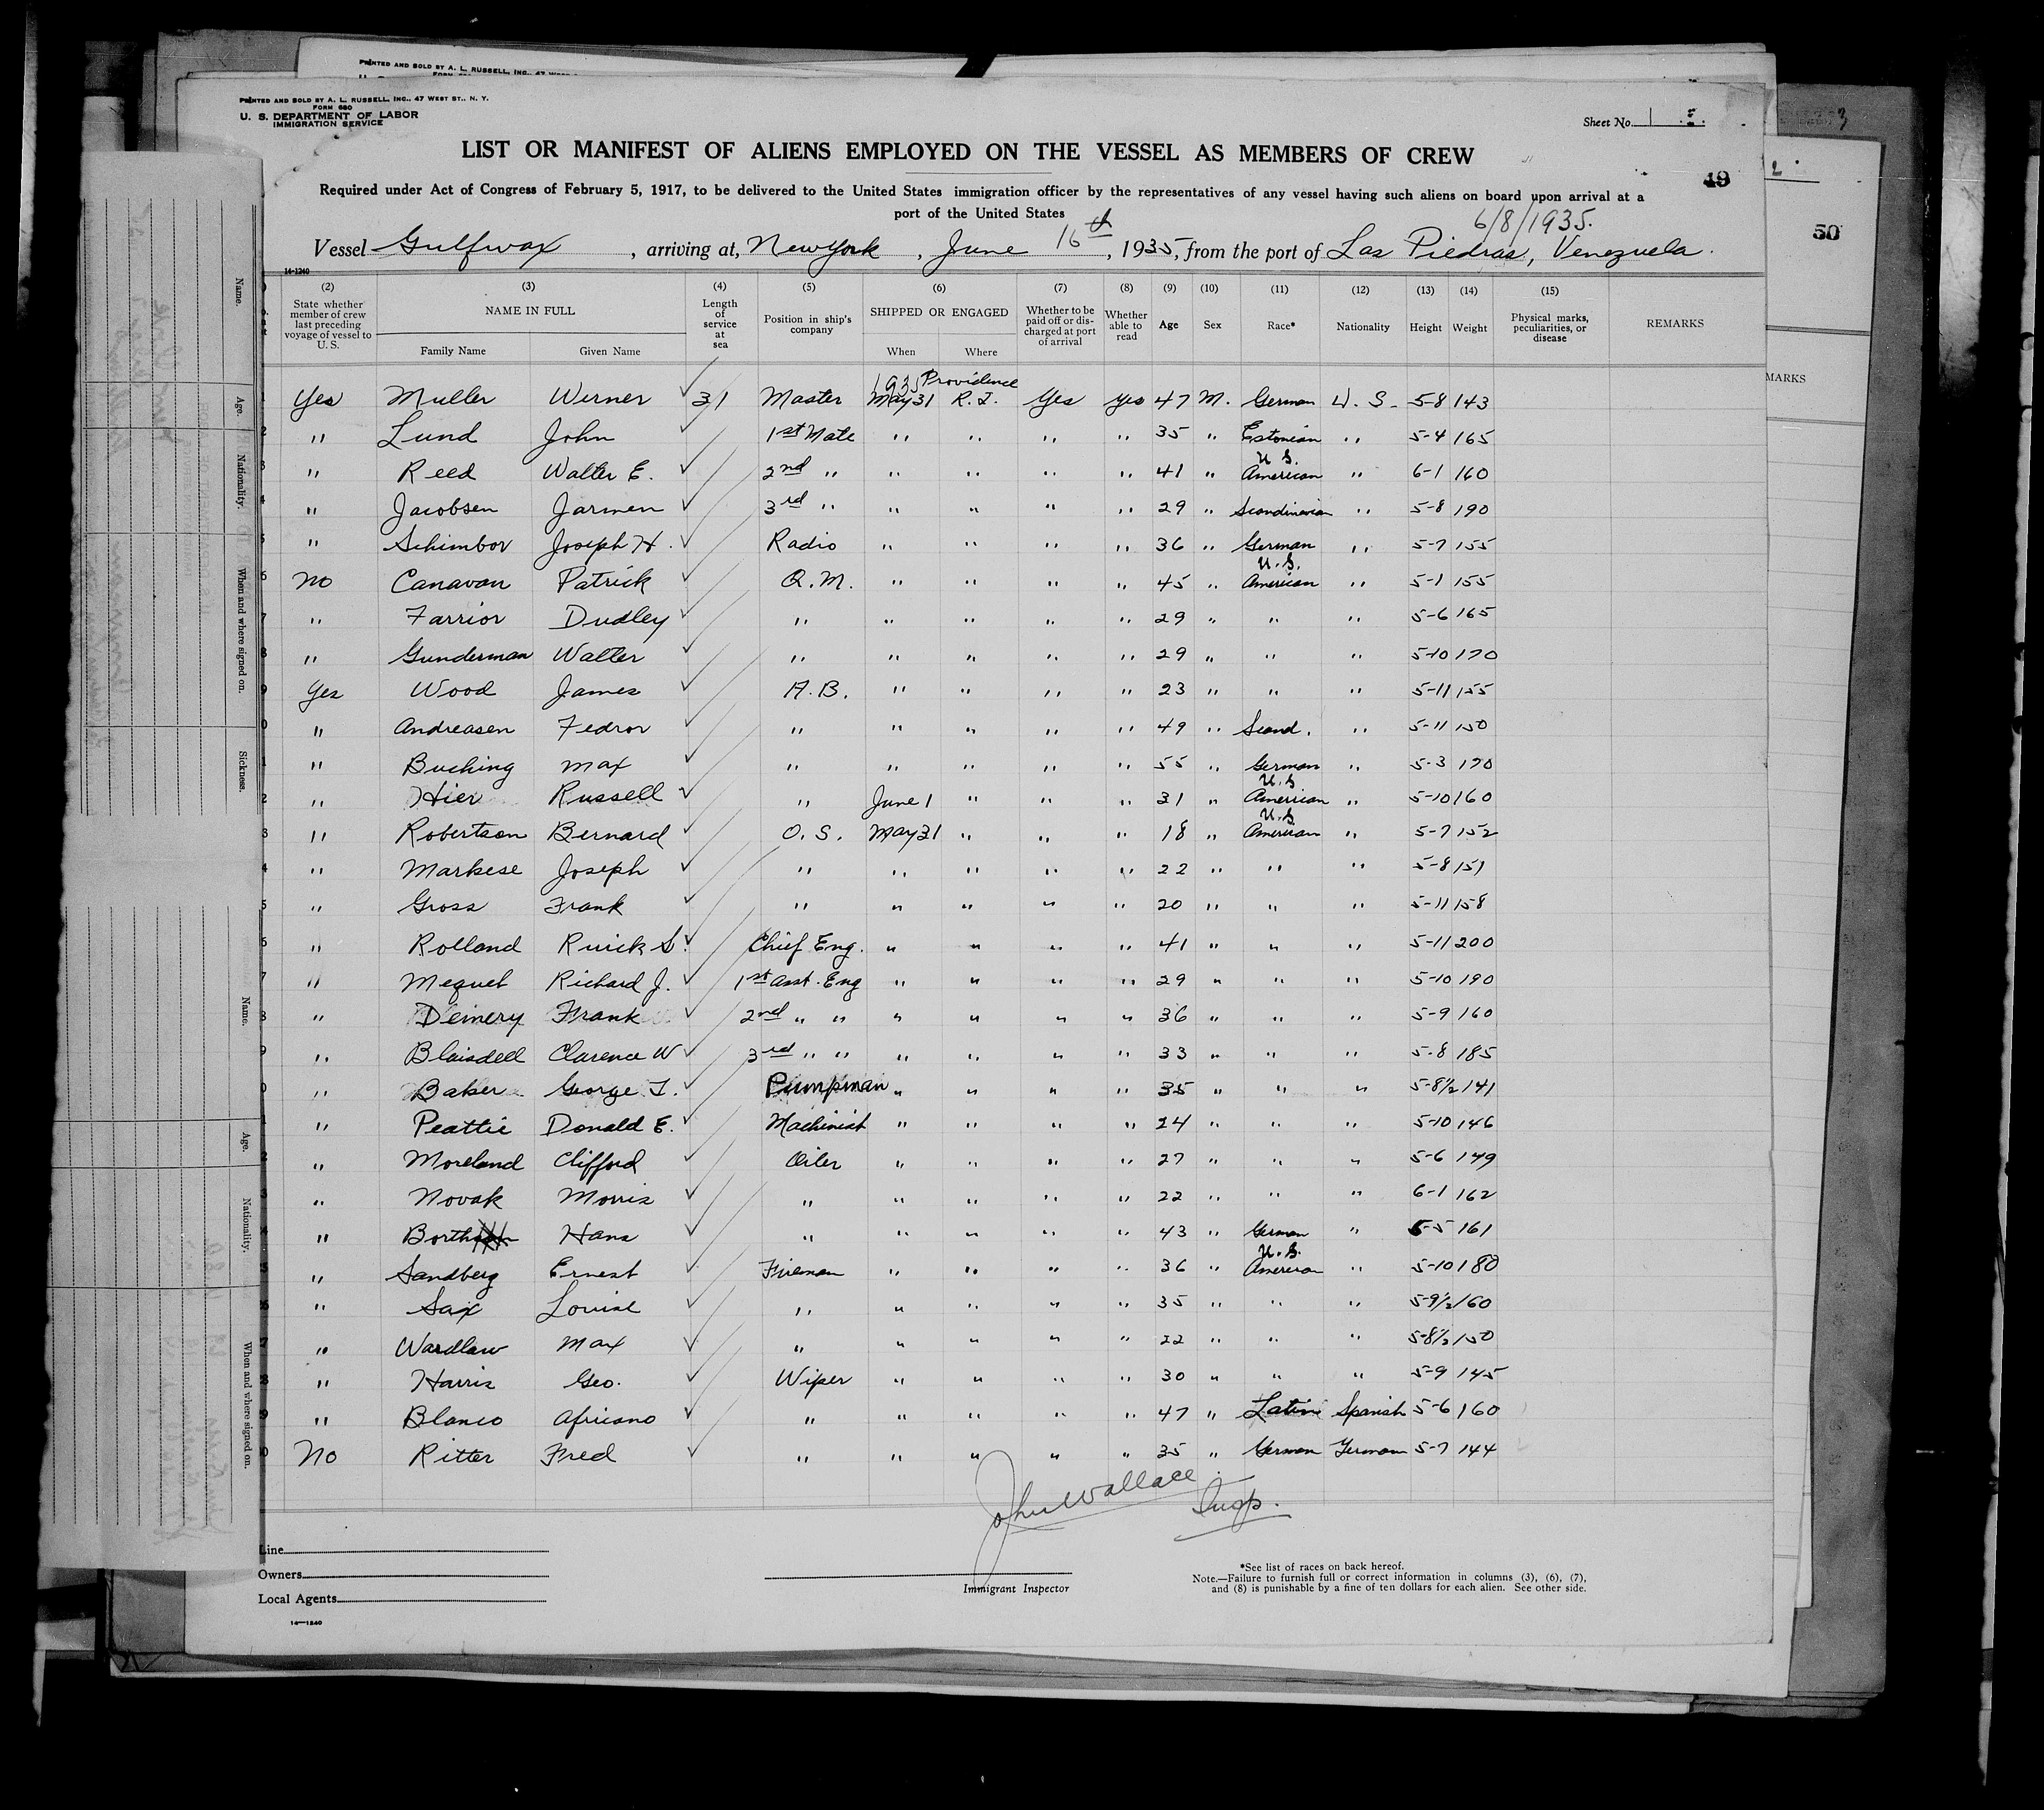 PRINTED AND SOLD BY A. L. RUSSELL, INC., 47 WEST
PRINTED AND SOLD BY A. L. RUSSELL, INC., 47 WEST ST., N. Y.
FORM 680
U. S. DEPARTMENT OF LABOR
IMMIGRATION SERVICE
Sheet No. 1
LIST OR MANIFEST OF ALIENS EMPLOYED ON THE VESSEL AS MEMBERS OF CREW
49
Required under Act of Congress of February 5, 1917, to be delivered to the United States immigration officer by the representatives of any vessel having such aliens on board upon arrival at a
port of the United States
6/8/1935.
50
Vessel Gulfwax, arriving at, New York, June 16th, 1935, from the port of Las Piedras, Venezuela.
14-1240
(2) (3) (4) (5) (6) (7) (8) (9) (10) (11) (12) (13) (14) (15)
State whether member of crew last preceding voyage of vessel to U. S. NAME IN FULL Family Name Given Name Length of service at sea Position in ship's company SHIPPED OR ENGAGED When Where Whether to be paid off or discharged at port of arrival Whether able to read Age Sex Race* Nationality Height Weight Physical marks, peculiarities, or disease REMARKS
MARKS
1935 Providence
Yes Muller Werner 31 Master May 31 R. I. Yes yes 47 M. German U. S. 5-8 143
" Lund John 1st Mate " " " " 35 " Estonian " 5-4 165
" Reed Walter E. 2nd " " " " " 41 " U. S. American " 6-1 160
" Jacobsen Jarmen 3rd " " " " " 29 " Scandinavian " 5-8 190
" Schimbor Joseph H. Radio " " " " 36 " German " 5-7 155
No Canavan Patrick Q. M. " " " " 45 " U. S. American " 5-1 155
" Farrior Dudley " " " " " 29 " " " 5-6 165
" Gunderman Walter " " " " " 29 " " " 5-10 170
Yes Wood James A. B. " " " " 23 " " " 5-11 155
" Andreasen Fedror " " " " " 49 " Scand. " 5-11 150
" Busking Max " " " " " 55 " German " 5-3 170
" Hier Russell " June 1 " " " 31 " U. S. American " 5-10 160
" Robertson Bernard O. S. May 31 " " " 18 " U. S. American " 5-7 152
" Markese Joseph " " " " " 22 " " " 5-8 151
" Gross Frank " " " " " 20 " " " 5-11 158
" Rolland Ruick S. Chief Eng. " " " " 41 " " " 5-11 200
" Mequet Richard J. 1st Asst. Eng " " " " 29 " " " 5-10 190
" Deinery Frank 2nd " " " " " " 36 " " " 5-9 160
" Blaisdell Clarence W 3rd " " " " " " 33 " " " 5-8 185
" Baker George T. Pumpman " " " " 35 " " " 5-8½ 141
" Peattie Donald E. Machinist " " " " 24 " " " 5-10 146
" Moreland Clifford Oiler " " " " 27 " " " 5-6 149
" Novak Morris " " " " " 22 " " " 6-1 162
" Borth Hans " " " " " 43 " German " 5-5 161
" Sandberg Ernest Fireman " " " " 36 " U. S. American " 5-10 180
" Sax Louise " " " " " 35 " " " 5-9½ 160
" Wardlaw Max " " " " " 22 " " " 5-8½ 150
" Harris Geo. Wiper " " " " 30 " " " 5-9 145
" Blanco Africano " " " " " 47 " Latin Spanish 5-6 160
No Ritter Fred " " " " " 35 " German German 5-7 144
John Wallace Insp.
Line
Owners
Local Agents
Immigrant Inspector
*See list of races on back hereof.
Note.—Failure to furnish full or correct information in columns (3), (6), (7),
and (8) is punishable by a fine of ten dollars for each alien. See other side.
14—1240
Name.
Age.
Nationality.
When and where signed on.
Sickness.
Name.
Age.
Nationality.
When and where signed on.